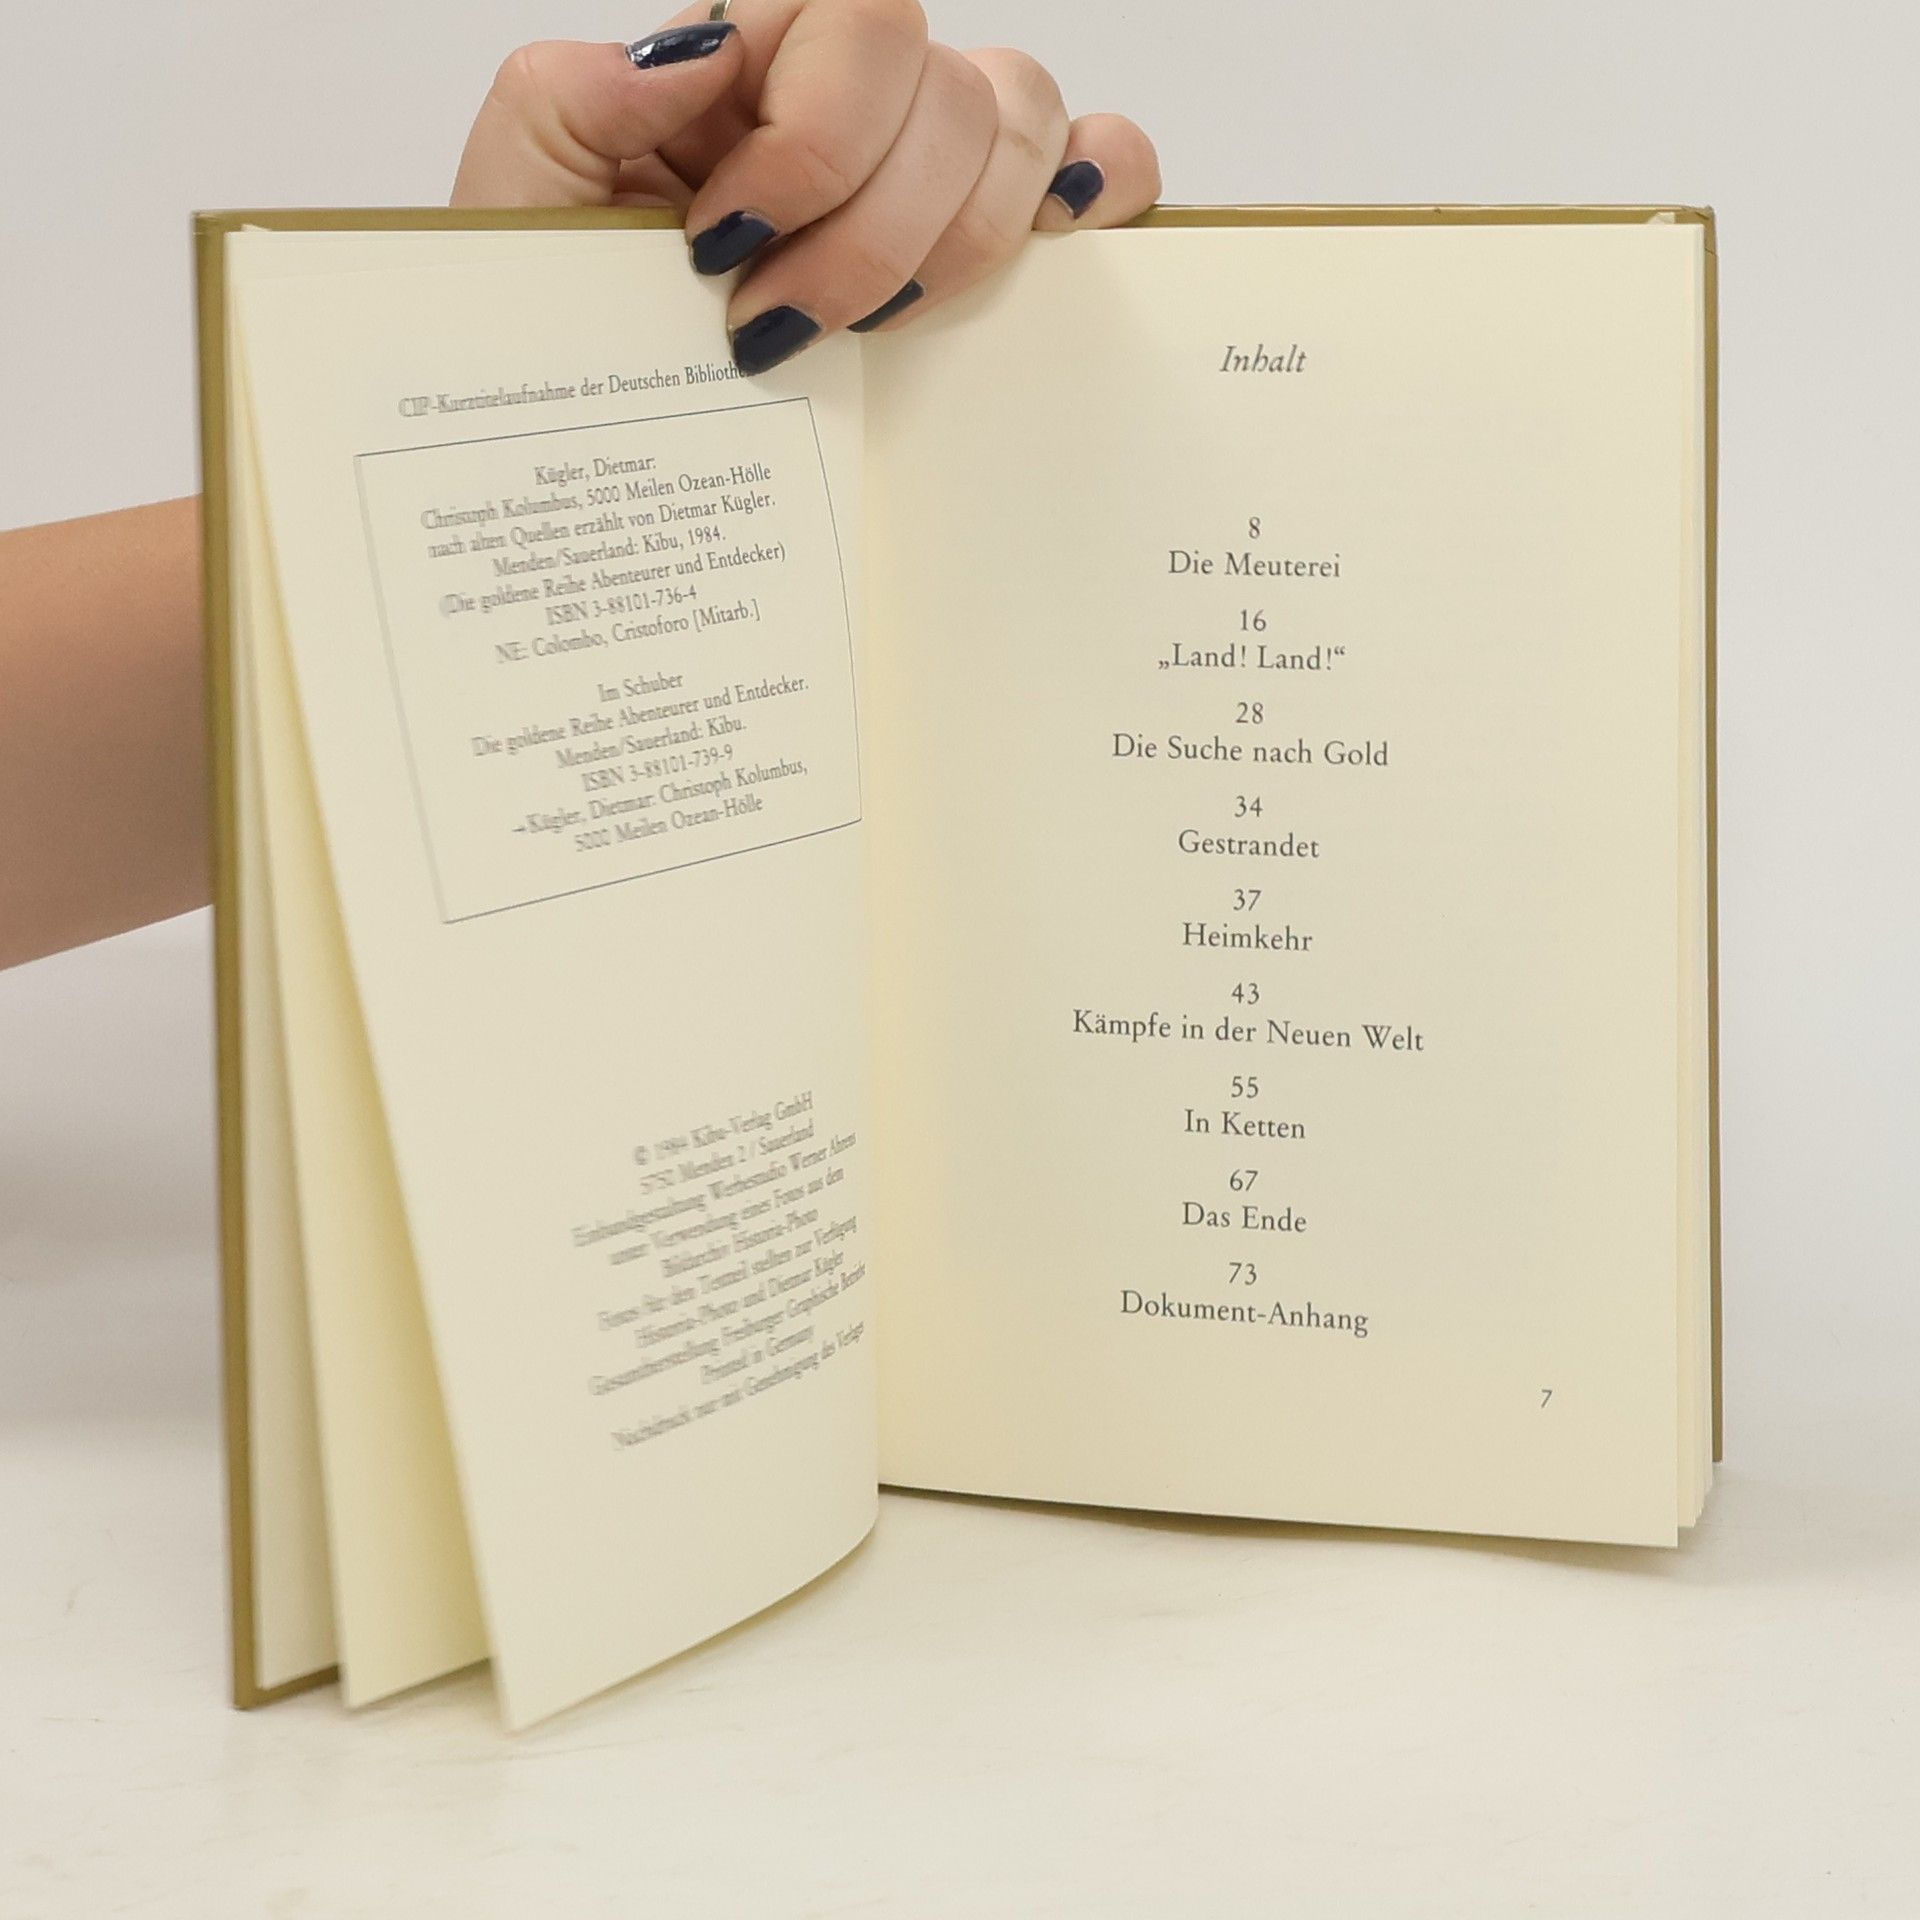 CIP-Kurztitelaufnahme der Deutschen
Kügler, Dietmar:
Christoph Kolumbus, 5000 Meilen Ozean-Hölle
nach alten Quellen erzählt von Dietmar Kügler.
Menden/Sauerland: Kibu, 1984.
(Die goldene Reihe Abenteurer und Entdecker)
ISBN 3-88101-736-4
NE: Colombo, Cristoforo [Mitarb.]
Im Schuber
Die goldene Reihe Abenteurer und Entdecker.
Menden/Sauerland: Kibu.
ISBN 3-88101-739-9
→Kügler, Dietmar: Christoph Kolumbus,
5000 Meilen Ozean-Hölle
© 1984 Kibu-Verlag GmbH
5750 Menden 2 / Sauerland
Einbandgestaltung Werbestudio Werner Ahrens
unter Verwendung eines Fotos aus dem
Bildarchiv Historia-Photo
Fotos für den Textteil stellten zur Verfügung
Historia-Photo und Dietmar Kügler
Gesamtherstellung Freiburger Graphische Betriebe
Printed in Germany
Nachdruck nur mit Genehmigung des Verlages
Inhalt
8
Die Meuterei
16
„Land! Land!“
28
Die Suche nach Gold
34
Gestrandet
37
Heimkehr
43
Kämpfe in der Neuen Welt
55
In Ketten
67
Das Ende
73
Dokument-Anhang
7